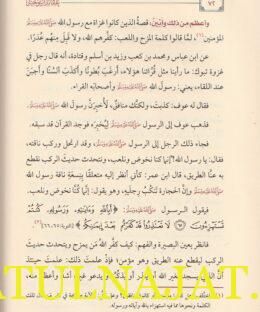 ٧٢
وأعظم من ذلك وأبين: قصة الذين كانوا غزاة مع رسول الله ﷺ
المؤمنين(١)، لما قالوا كلمة المزح واللعب: كفرهم الله، ولا قبل منهم عذرًا.
عن ابن عباس ومحمد بن كعب وزيد بن أسلم وقتادة، أنه قال رجل في
غزوة تبوك: ما رأينا مثل قرائنا هؤلاء، أرغب بطونًا وأكذب ألسنًا وأجبن
عند اللقاء، يعني: رسول الله ﷺ وأصحابه القراء.
فقال له عوف: كذبت، ولكنك منافق، لأخبرن رسول الله ﷺ
فذهب عوف إلى الرسول ﷺ ليخبره فوجد القرآن قد سبقه.
فجاء ذلك الرجل إلى الرسول ﷺ، وقد ارتحل وركب ناقته،
فقال: يا رسول الله! إنما كنا نخوض ونلعب، ونتحدث حديث الركب نقطع
به عنا الطريق، قال ابن عمر: كأني أنظر إليه متعلقًا بنسعة ناقة رسول الله
ﷺ وإن الحجارة لتنكب رجليه، وهو يقول: إنما كنا نخوض ونلعب.
فيقول الرسول ﷺ ﴿أبالله وءايته ورسوله كنتم
تستهزءون ۝ لا تعتذروا قد كفرتم بعد إيمنكم﴾
فانظر بعين البصيرة والفهم: كيف كفر الله من يمزح ويتحدث حديث
الركب ليقطع عنه الطريق وهو مؤمن؛ فإذا علمت ذلك: علمت حينئذ